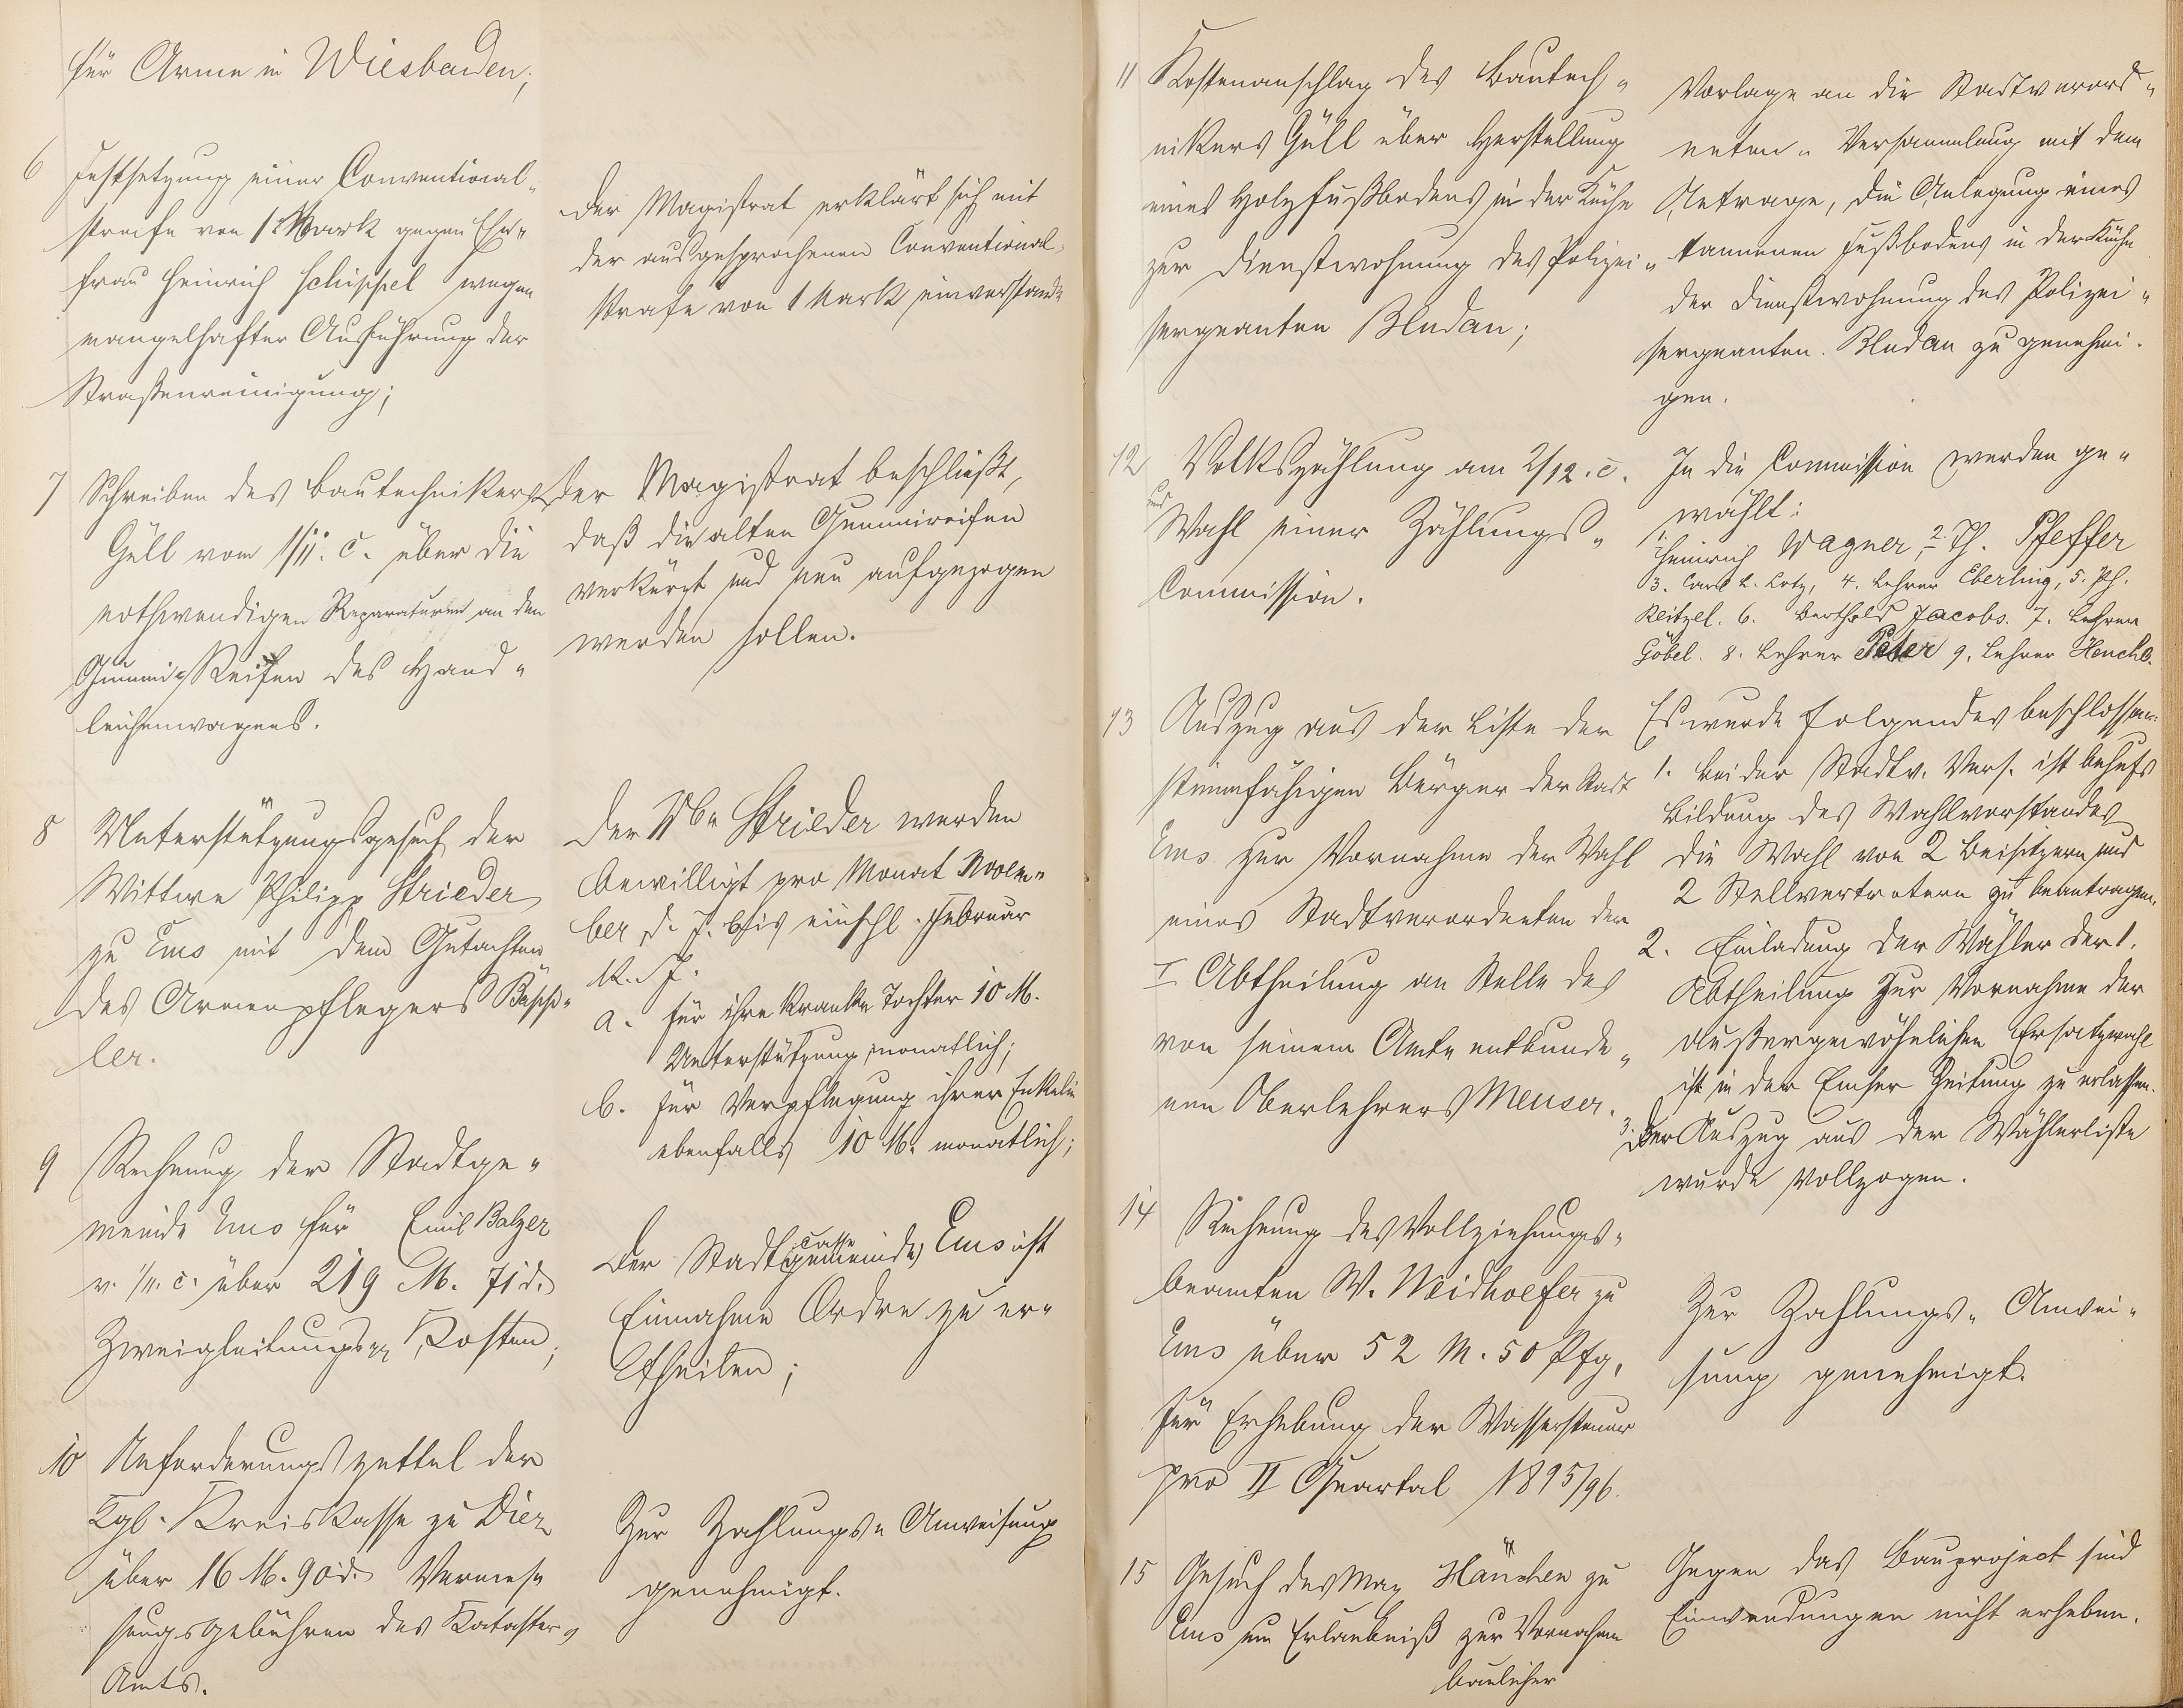 für Arme in Wiesbaden;
6 Festsetzung einer Conventional-
strafe von 1 Mark gegen Ehe-
frau Heinrich Schippel wegen
mangelhafter Ausführung der
Straßenreinigung;
Der Magistrat erklärt sich mit
der ausgesprochenen Conventional-
strafe von 1 Mark einverstanden
7 Schreiben des Bautechnikers
Güll vom 1/11. c. über die
nothwendigen Reparaturen an den
Gummi-Reifen des Hand-
leichenwagens.
Der Magistrat beschließt,
daß die alten Gummireifen
verkürzt und neu aufgezogen
werden sollen.
8 Unterstützungsgesuch der
Wittwe Philipp Strieder
zu Ems mit dem Gutachten
des Armenpflegers Bäpp-
ler.
Der Wwe Strieder werden
bewilligt pro Monat Novem-
ber d. J. bis einschl. Februar
k. J.
a. für ihre kranke Tochter 10 M.
Unterstützung monatlich;
b. für Verpflegung ihrer Enkelin
ebenfalls 10 M. monatlich;
9 Rechnung der Stadtge-
meinde Ems für Emil Balzer
v. 1/11. c. über 219 M. 71 d.
Zweigleitungs- Kosten;
Der Stadtgemeinde casse Ems ist
Einnahme Ordre zu er-
theilen;
10 Anforderungszettel der
Kgl. Kreiskasse zu Diez
über 16 M. 90 d. Vermes-
sungsgebühren des Kataster-
Amts.
Zur Zahlungs-Anweisung
genehmigt.
11 Kostenanschlag des Bautech-
nikers Güll über Herstellung
eines Holzfußbodens in der Küche
zur Dienstwohnung des Polizei-
sergeanten Bludau;
Vorlage an die Stadtverord-
neten-Versammlung mit dem
Antrage, die Anlegung eines
tannenen Fußbodens in der Küche
der Dienstwohnung des Polizei-
sergeanten Bludau zu genehmi-
gen.
12 Volkszählung am 2/12. c.
und Wahl einer Zählungs-
Commission.
In die Commission werden ge-
wählt:
1. Heinrich Wagner, 2. Th. Pfeffer
3. Carl L. Lotz, 4. Lehrer Eberling, 5. Ph.
Reitzel. 6. Berthold Jacobs. 7. Lehrer
Göbel. 8. Lehrer Peter 9. Lehrer Henche.
13 Auszug aus der Liste der
stimmfähigen Bürger der Stadt
Ems zur Vornahme der Wahl
eines Stadtverordneten der
I Abtheilung an Stelle des
von seinem Amte entbunde-
nen Oberlehrers Meuser.
Es wurde Folgendes beschlossen:
1. bei der Stadtv. Vers. ist behufs
Bildung des Wahlvorstandes
die Wahl von 2 Beisitzern und
2 Stellvertretern zu beantragen.
2. Einladung der Wähler der 1.
Abtheilung zur Vornahme der
außergewöhnlichen Ersatzwahl
ist in der Emser Zeitung zu erlassen.
3. Der Auszug aus der Wählerliste
wurde vollzogen.
14 Rechnung des Vollziehungs-
beamten W. Weidhoefer zu
Ems über 52 M. 50 Pfg.
für Erhebung der Wassersteuer
pro II Quartal 1895/96.
Zur Zahlungs-Anwei-
sung genehmigt.
15 Gesuch des Max Hänchen zu
Ems um Erlaubniß zur Vornahme
baulicher
Gegen das Bauproject sind
Einwendungen nicht erheben.